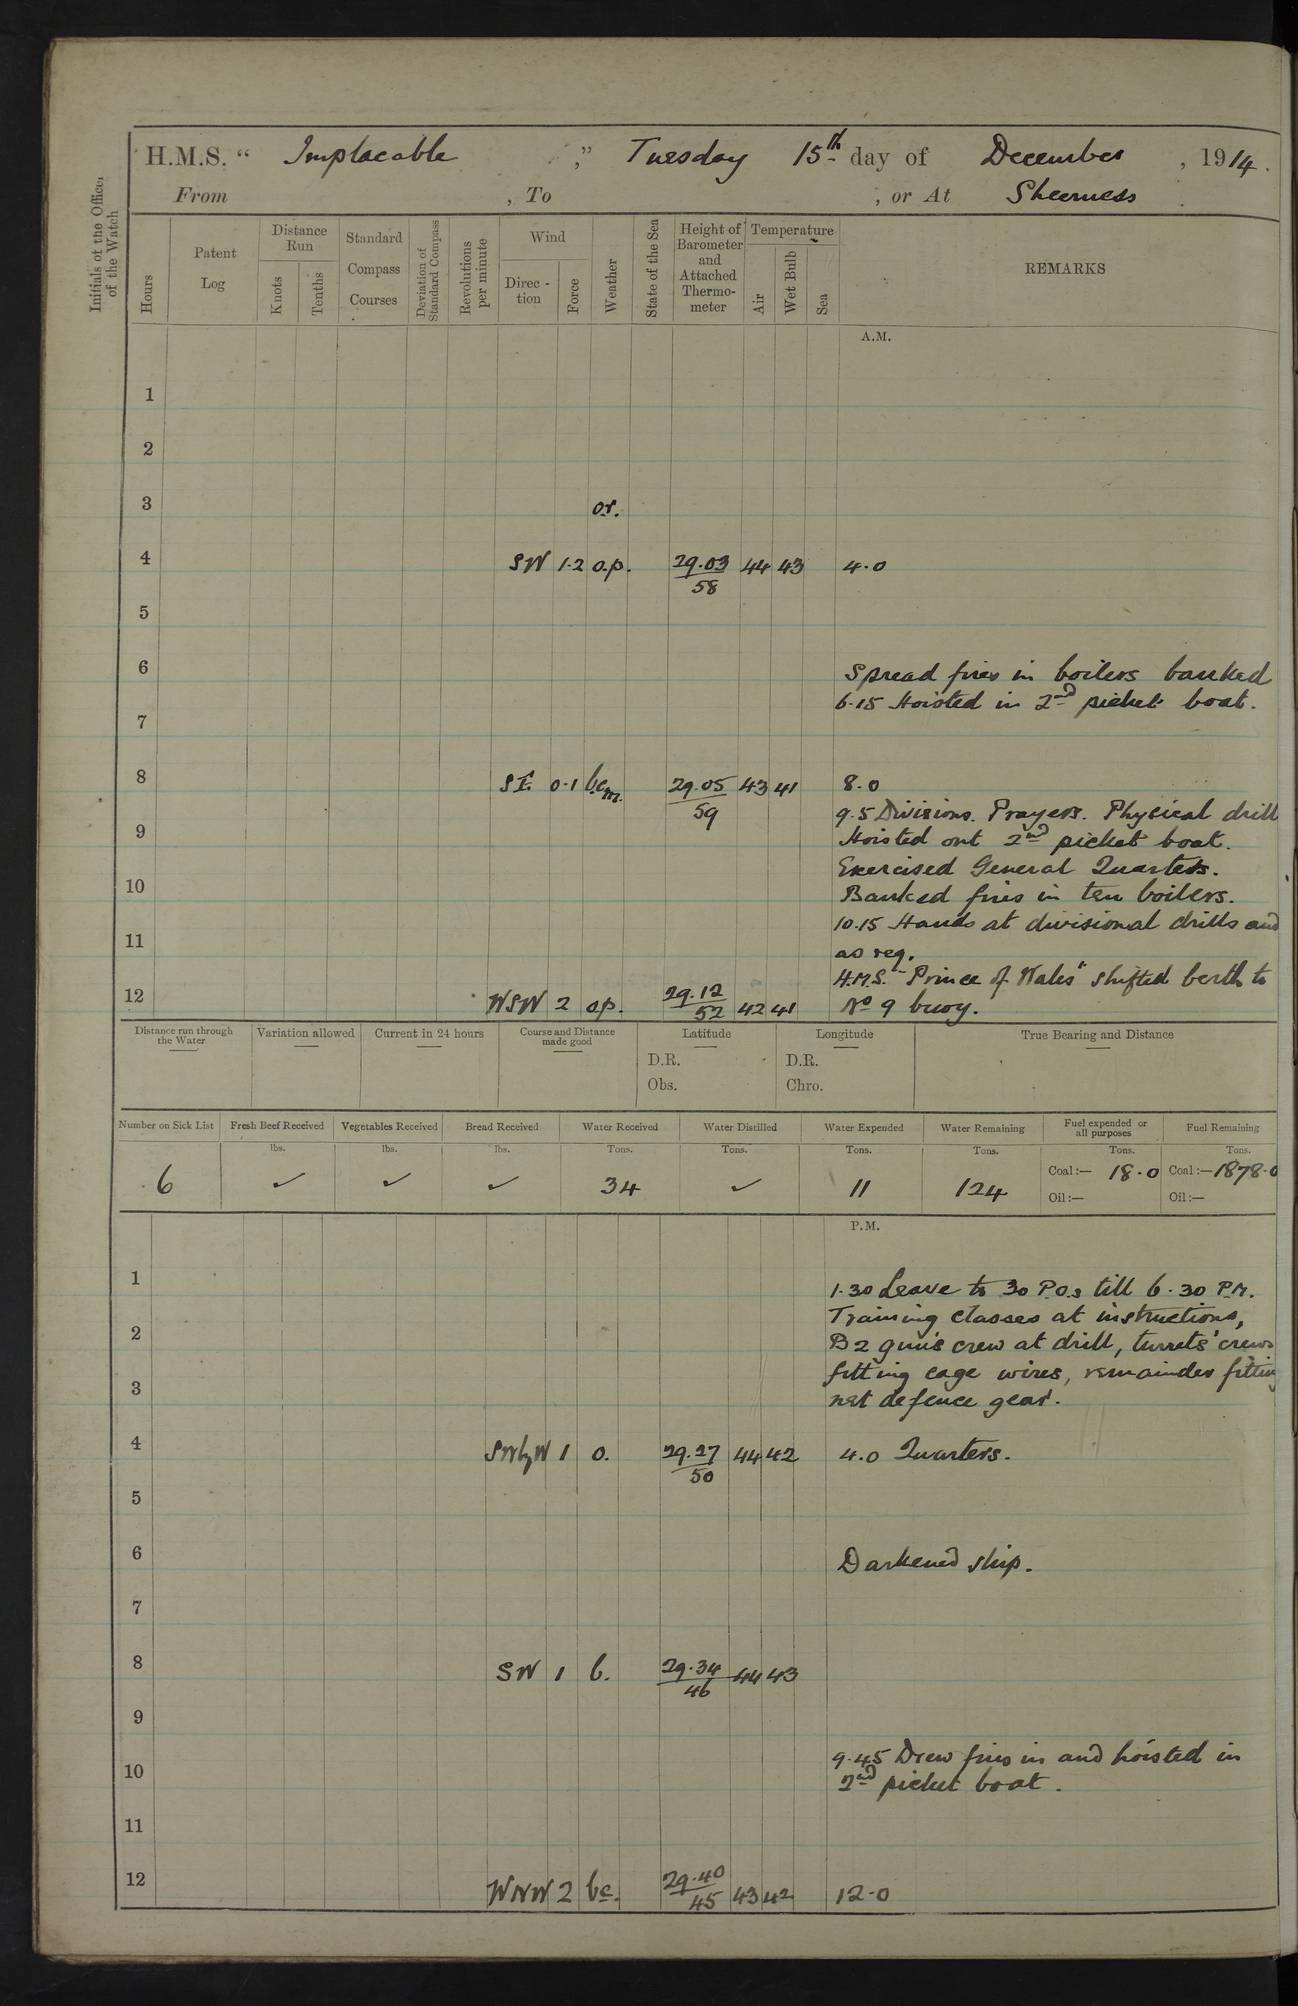 Initials of the Officer of the Watch
H.M.S. “ Implacable ,” Tuesday 15th day of December , 1914.
From , To , or At Sheerness
Hours Patent Log Distance Run Knots Tenths Standard Compass Courses Deviation of Standard Compass Revolutions per minute Wind Direc-tion Force Weather State of the Sea Height of Barometer and Attached Thermo-meter Temperature Air Wet Bulb Sea REMARKS
A.M.
1
2
3 o.r.
4 SW 1.2 o.p. 29.03 58 44 43 4.0
5
6 Spread fires in boilers banked
6.15 Hoisted in 2nd picket boat.
7
8 SE. 0.1 bcm. 29.05 59 43 41 8.0
9.5 Divisions. Prayers. Physical drill
9 Hoisted out 2nd picket boat.
Exercised General Quarters.
10 Banked fires in ten boilers.
10.15 Hands at divisional drills and
11 as req.
H.M.S. "Prince of Wales" shifted berth to
12 WSW 2 o.p. 29.12 52 42 41 No 9 buoy.
Distance run through the Water Variation allowed Current in 24 hours Course and Distance made good Latitude Longitude True Bearing and Distance
D.R. D.R.
Obs. Chro.
Number on Sick List Fresh Beef Received Vegetables Received Bread Received Water Received Water Distilled Water Expended Water Remaining Fuel expended or all purposes Fuel Remaining
lbs. lbs. lbs. Tons. Tons. Tons. Tons. Tons. Tons.
6 ✓ ✓ ✓ 34 ✓ 11 124 Coal:— 18.0 Coal:— 1878.0
Oil:— Oil:—
P.M.
1 1.30 Leave to 30 P.O.s till 6.30 P.M.
Training classes at instructions,
2 B2 gun's crew at drill, turrets' crews
fitting cage wires, remainder fitting
3 net defence gear.
4 SWbyW 1 o. 29.27 50 44 42 4.0 Quarters.
5
6 Darkened ship.
7
8 SW 1 b. 29.34 46 44 43
9
9.45 Drew fires in and hoisted in
10 2nd picket boat.
11
12 WNW 2 bc. 29.40 45 43 42 12.0